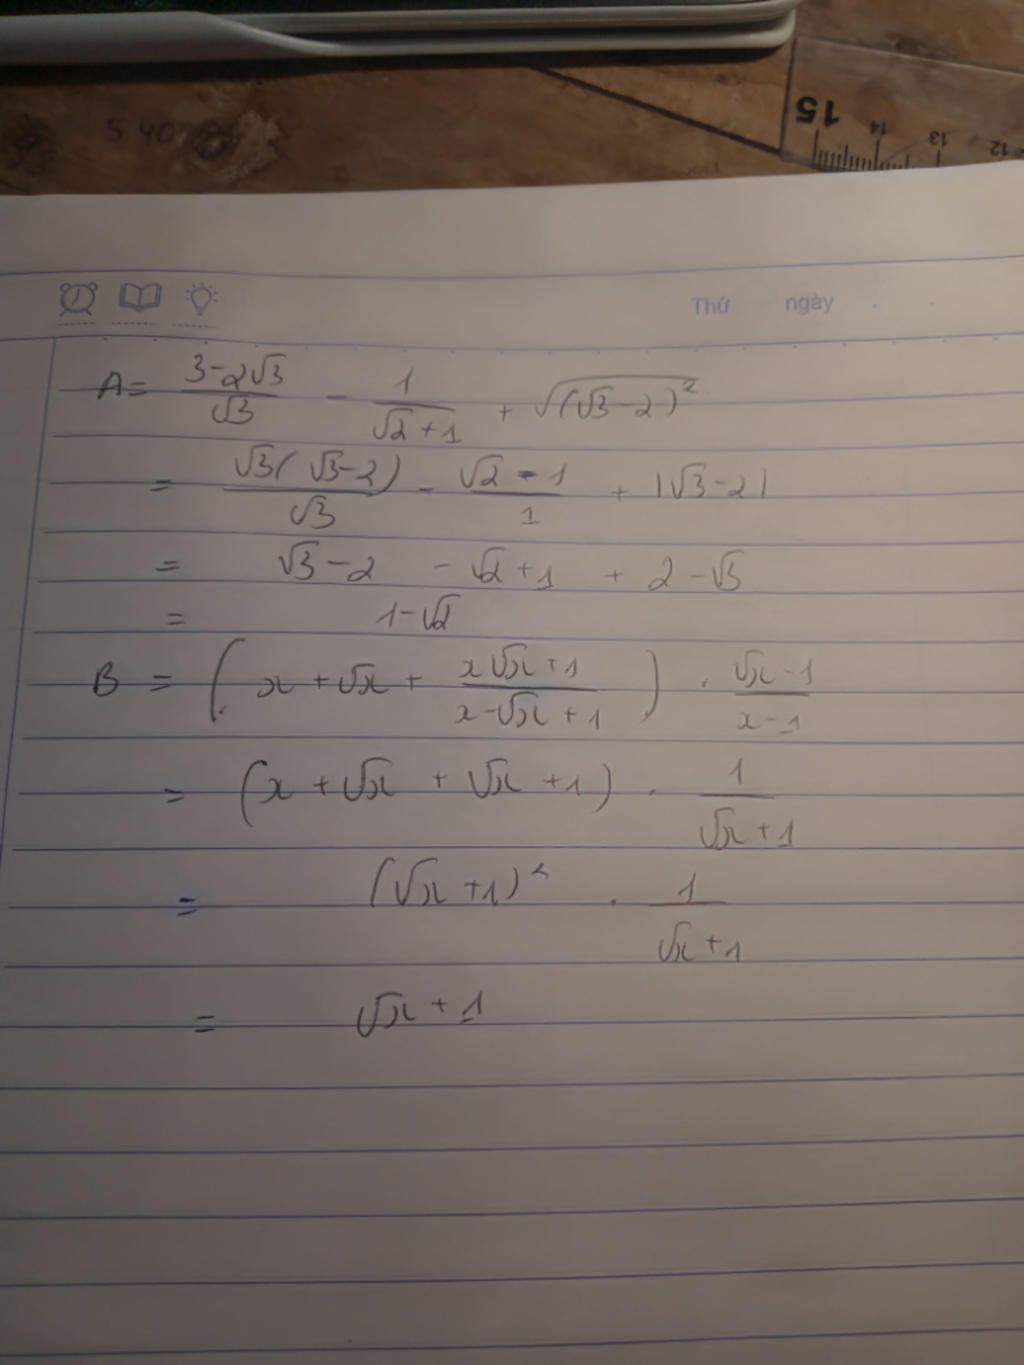 15 14 13 12
5 40
Thứ ngày
A = (3-2√3)/√3 - 1/(√2+1) + √((√3-2)²)
= √3(√3-2)/√3 - (√2-1)/1 + |√3-2|
= √3-2 -√2+1 + 2-√3
= 1-√2
B = (x+√x + (x√x+1)/(x-√x+1)) . (√x-1)/(x-1)
= (x+√x + √x+1) . 1/(√x+1)
= (√x+1)² . 1/(√x+1)
= √x+1